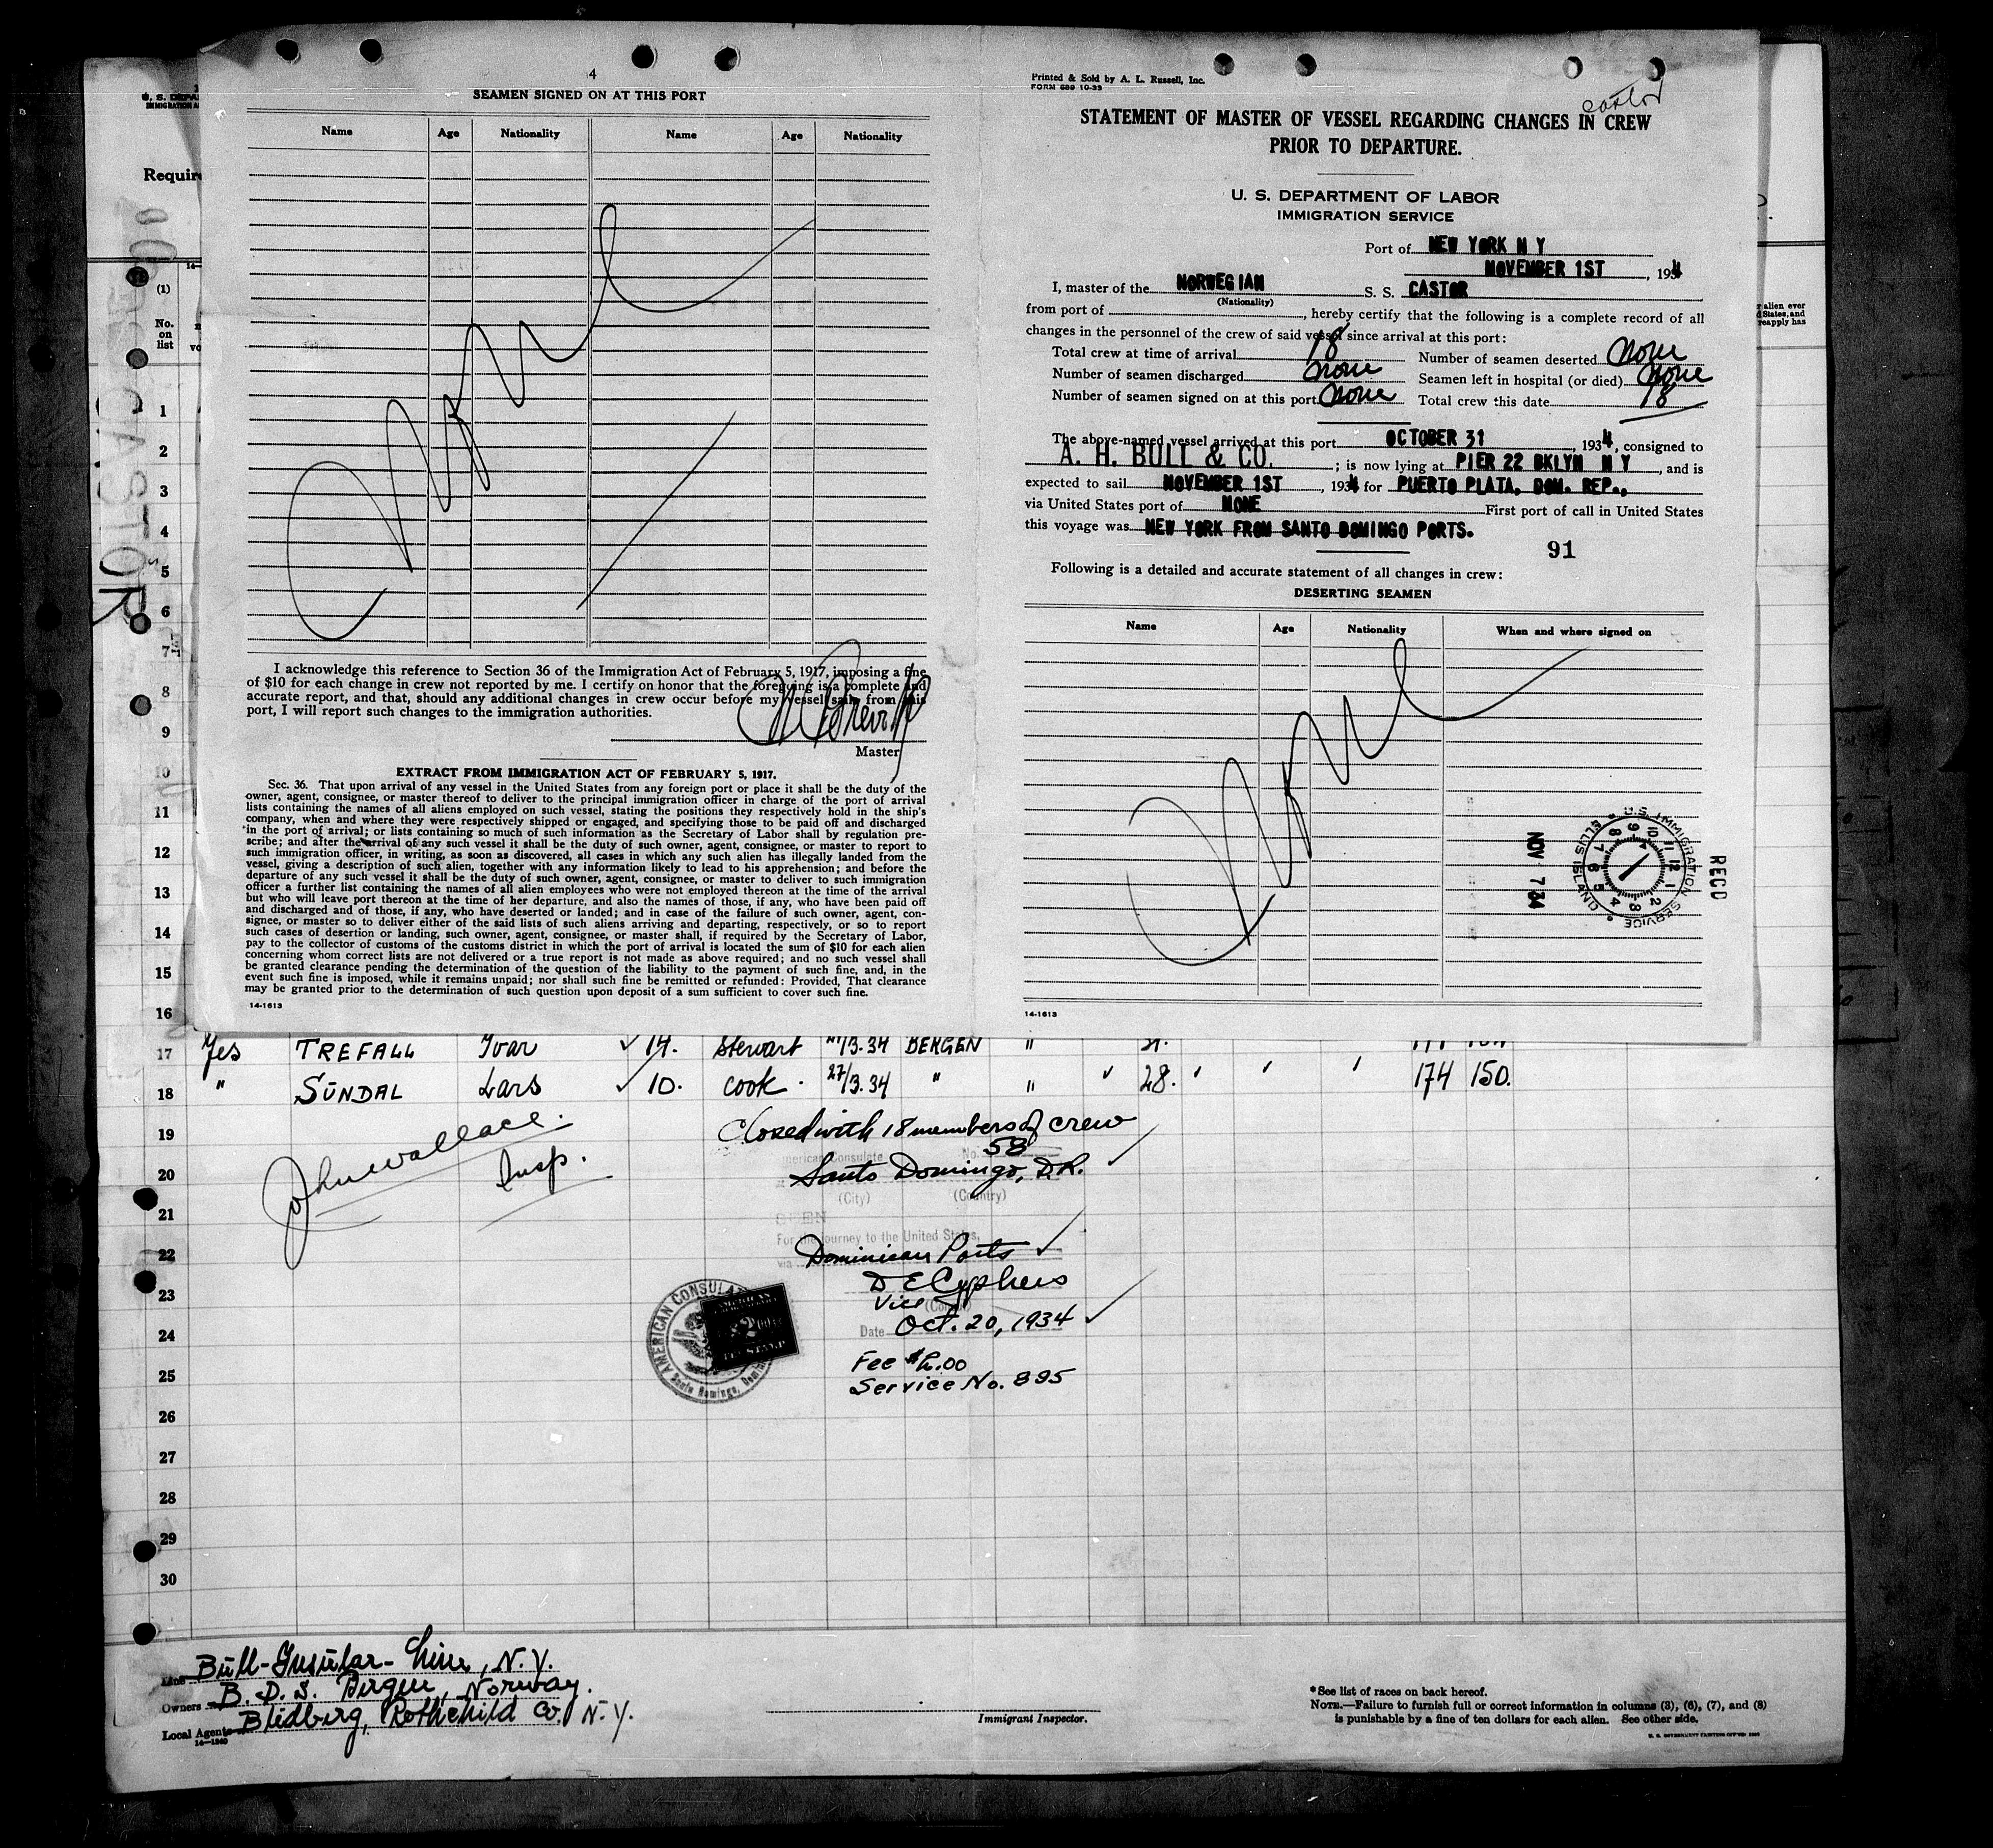 4
SEAMEN SIGNED ON AT THIS PORT
Name Age Nationality Name Age Nationality
None
I acknowledge this reference to Section 36 of the Immigration Act of February 5, 1917, imposing a fine
of $10 for each change in crew not reported by me. I certify on honor that the foregoing is a complete and
accurate report, and that, should any additional changes in crew occur before my vessel sails from this
port, I will report such changes to the immigration authorities.
Master
EXTRACT FROM IMMIGRATION ACT OF FEBRUARY 5, 1917.
Sec. 36. That upon arrival of any vessel in the United States from any foreign port or place it shall be the duty of the
owner, agent, consignee, or master thereof to deliver to the principal immigration officer in charge of the port of arrival
lists containing the names of all aliens employed on such vessel, stating the positions they respectively hold in the ship's
company, when and where they were respectively shipped or engaged, and specifying those to be paid off and discharged
in the port of arrival; or lists containing so much of such information as the Secretary of Labor shall by regulation pre-
scribe; and after the arrival of any such vessel it shall be the duty of such owner, agent, consignee, or master to report to
such immigration officer, in writing, as soon as discovered, all cases in which any such alien has illegally landed from the
vessel, giving a description of such alien, together with any information likely to lead to his apprehension; and before the
departure of any such vessel it shall be the duty of such owner, agent, consignee, or master to deliver to such immigration
officer a further list containing the names of all alien employees who were not employed thereon at the time of the arrival
but who will leave port thereon at the time of her departure, and also the names of those, if any, who have been paid off
and discharged and of those, if any, who have deserted or landed; and in case of the failure of such owner, agent, con-
signee, or master so to deliver either of the said lists of such aliens arriving and departing, respectively, or so to report
such cases of desertion or landing, such owner, agent, consignee, or master shall, if required by the Secretary of Labor,
pay to the collector of customs of the customs district in which the port of arrival is located the sum of $10 for each alien
concerning whom correct lists are not delivered or a true report is not made as above required; and no such vessel shall
be granted clearance pending the determination of the question of the liability to the payment of such fine, and, in the
event such fine is imposed, while it remains unpaid; nor shall such fine be remitted or refunded: Provided, That clearance
may be granted prior to the determination of such question upon deposit of a sum sufficient to cover such fine.
14-1613
Printed & Sold by A. L. Russell, Inc.
FORM 689 10-33
Castor
STATEMENT OF MASTER OF VESSEL REGARDING CHANGES IN CREW
PRIOR TO DEPARTURE.
U. S. DEPARTMENT OF LABOR
IMMIGRATION SERVICE
Port of NEW YORK N Y
NOVEMBER 1ST, 1934
I, master of the NORWEGIAN S. S. CASTOR
(Nationality)
from port of , hereby certify that the following is a complete record of all
changes in the personnel of the crew of said vessel since arrival at this port:
Total crew at time of arrival 18 Number of seamen deserted None
Number of seamen discharged None Seamen left in hospital (or died) None
Number of seamen signed on at this port None Total crew this date 18
The above-named vessel arrived at this port OCTOBER 31, 1934, consigned to
A. H. BULL & CO. ; is now lying at PIER 22 BKLYN N Y, and is
expected to sail NOVEMBER 1ST, 1934 for PUERTO PLATA, DOM. REP.,
via United States port of NONE First port of call in United States
this voyage was NEW YORK FROM SANTO DOMINGO PORTS.
91
Following is a detailed and accurate statement of all changes in crew:
DESERTING SEAMEN
Name Age Nationality When and where signed on
None
RECD
U.S. IMMIGRATION SERVICE ELLIS ISLAND
NOV 7 34
14-1613
Requir
CASTOR
(1)
No.
on
list
1
2
3
4
5
6
7
8
9
10
11
12
13
14
15
16
17 Yes TREFALL Ivar 14. Stewart 3.34 BERGEN "
18 " SUNDAL Lars 10. cook. 27/3.34 " " " 28. " " " 174 150.
19 Closed with 18 members of crew
John Wallace
Insp.
American Consulate No. 58
20 Santo Domingo, D.R.
(City) (Country)
21
For the journey to the United States,
22 via Dominican Ports
23 D E Cyphers
Vice (Consul)
24 Date Oct. 20, 1934
AMERICAN CONSULATE Santo Domingo, Domin
Fee $2.00
25 Service No. 895
26
27
28
29
30
Line Bull-Insular-Line, N.Y.
Owners B. D. S. Bergen, Norway.
Local Agents Bledberg, Rothchild Co. N.Y.
14-1240
Immigrant Inspector.
*See list of races on back hereof.
NOTE.—Failure to furnish full or correct information in columns (3), (6), (7), and (8)
is punishable by a fine of ten dollars for each alien. See other side.